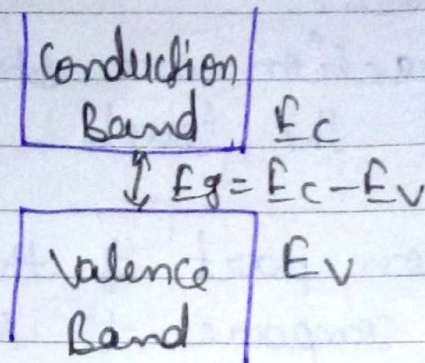 Conduction
Band Ec
Eg = Ec - Ev
Valence Ev
Band